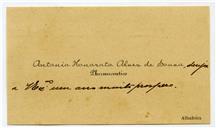 Antonio Honorato Alves de Souza, deseja
Pharmaceutico
a V. Exª um anno muito prospero.
Albufeira